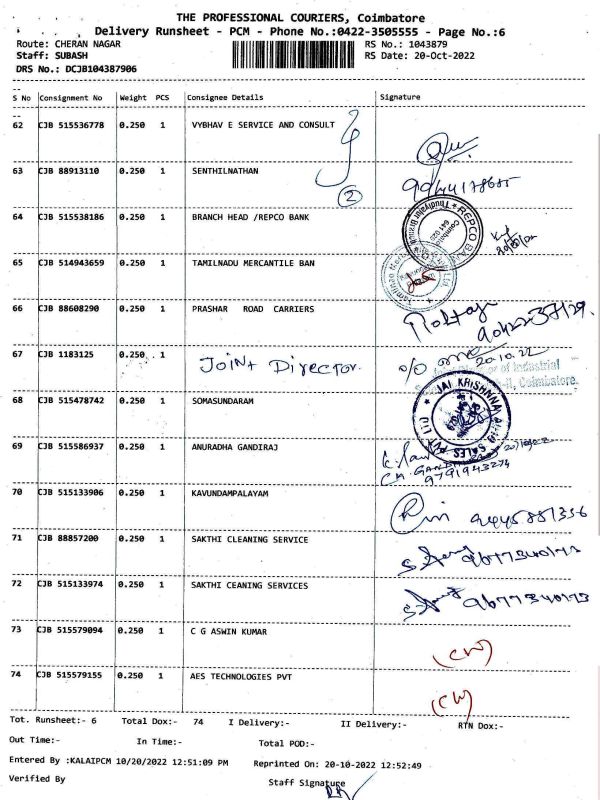 THE PROFESSIONAL COURIERS, Coimbatore
Delivery Runsheet - PCM - Phone No.:0422-3505555 - Page No.:6
Route: CHERAN NAGAR RS No.: 1043879
Staff: SUBASH RS Date: 20-Oct-2022
DRS No.: DCJB104387906
S No Consignment No Weight PCS Consignee Details Signature
62 CJB 515536778 0.250 1 VYBHAV E SERVICE AND CONSULT
63 CJB 88913110 0.250 1 SENTHILNATHAN
2
64 CJB 515538186 0.250 1 BRANCH HEAD /REPCO BANK
65 CJB 514943659 0.250 1 TAMILNADU MERCANTILE BAN
66 CJB 88608290 0.250 1 PRASHAR ROAD CARRIERS
67 CJB 1183125 0.250 1 Joint Director.
20.10.22
of Industrial
Coimbatore
68 CJB 515478742 0.250 1 SOMASUNDARAM
JAI KRISHNNA
69 CJB 515586937 0.250 1 ANURADHA GANDIRAJ
9791943274
70 CJB 515133906 0.250 1 KAVUNDAMPALAYAM
9445881356
71 CJB 88857200 0.250 1 SAKTHI CLEANING SERVICE
9677340173
72 CJB 515133974 0.250 1 SAKTHI CEANING SERVICES
9677340173
73 CJB 515579094 0.250 1 C G ASWIN KUMAR
74 CJB 515579155 0.250 1 AES TECHNOLOGIES PVT
Tot. Runsheet:- 6 Total Dox:- 74 I Delivery:- II Delivery:- RTN Dox:-
Out Time:- In Time:- Total POD:-
Entered By :KALAIPCM 10/20/2022 12:51:09 PM Reprinted On: 20-10-2022 12:52:49
Verified By Staff Signature